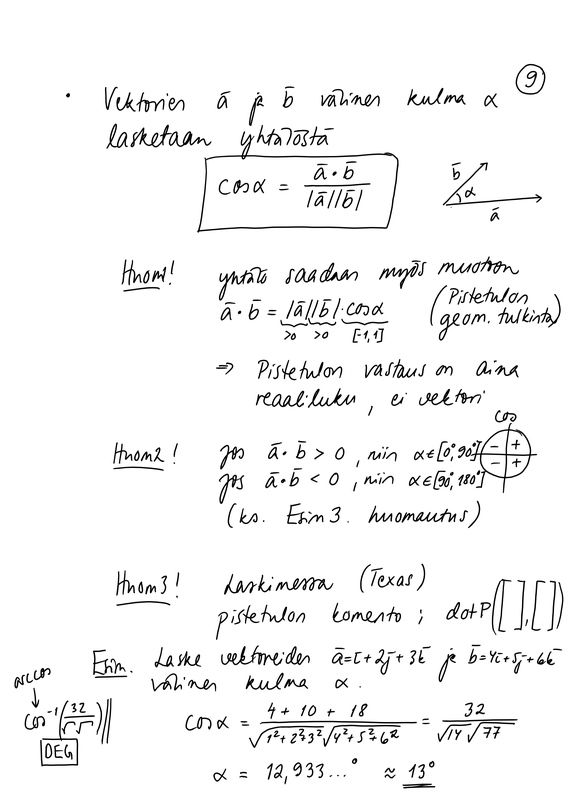 9
• Vektorien ā ja b̄ välinen kulma α
lasketaan yhtälöstä
cosα = ā·b̄ / |ā||b̄|
b̄
α
ā
Huom1! yhtälö saadaan myös muotoon
ā·b̄ = |ā||b̄|·cosα (Pistetulon
geom. tulkinta)
>0 >0 [-1,1]
⇒ Pistetulon vastaus on aina
reaaliluku, ei vektori
cos
Huom2! Jos ā·b̄ > 0, niin α∈[0°,90°]
Jos ā·b̄ < 0, niin α∈[90°,180°]
- +
- +
(ks. Esim 3. huomautus)
Huom3! Laskimessa (Texas)
pistetulon komento ; dotP([ ],[ ])
Esim. Laske vektoreiden ā=ī+2j̄+3k̄ ja b̄=4ī+5j̄+6k̄
välinen kulma α.
arccos
↓
cos⁻¹(32/√√)
DEG
cosα = 4 + 10 + 18 / √1²+2²+3² √4²+5²+6² = 32 / √14 √77
α = 12,933...° ≈ 13°